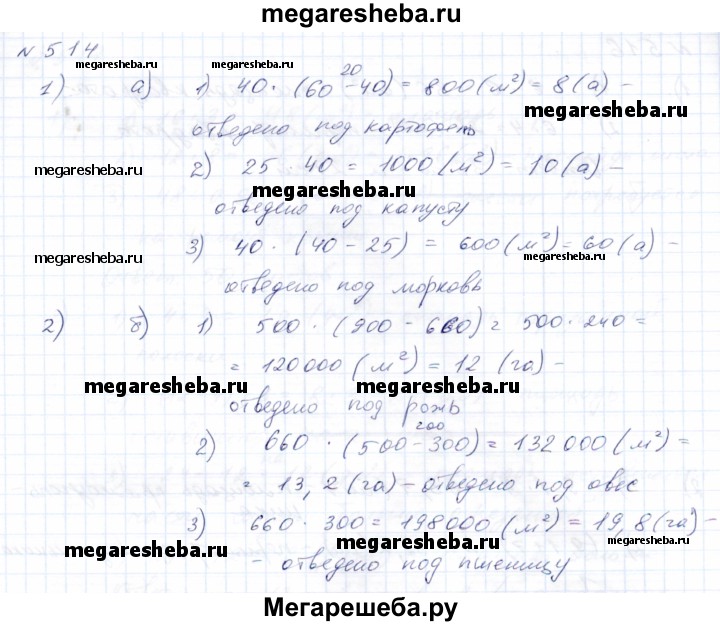 megaresheba.ru
N 514
megaresheba.ru megaresheba.ru
20
1) а) 1) 40 · (60 - 40) = 800 (м²) = 8 (а) -
megaresheba.ru
отведено под картофель
megaresheba.ru
2) 25 · 40 = 1000 (м²) = 10 (а) -
megaresheba.ru
отведено под капусту
3) 40 · (40 - 25) = 600 (м²) = 60 (а) -
megaresheba.ru megaresheba.ru
отведено под морковь
2) б) 1) 500 · (900 - 660) = 500 · 240 =
= 120000 (м²) = 12 (га) -
megaresheba.ru megaresheba.ru
отведено под рожь
200
2) 660 · (500 - 300) = 132000 (м²) =
= 13,2 (га) - отведено под овес
3) 660 · 300 = 198000 (м²) = 19,8 (га) -
megaresheba.ru megaresheba.ru megaresheba.ru
- отведено под пшеницу
Мегарешеба.ру